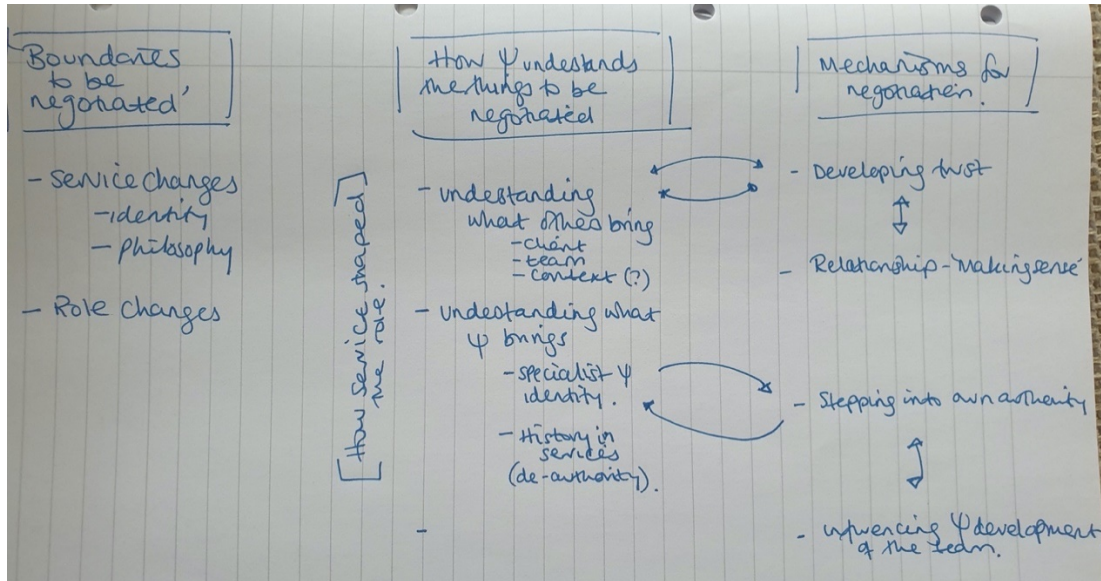 Boundaries
to be
negotiated'
- Service changes
- identity
- philosophy
- Role changes
[How service shaped
the role.]
How Ψ undestands
the things to be
negotiated
- undestanding
what others bring
- client
- team
- context (?)
- undestanding what
Ψ brings
- specialist Ψ
identity.
- History in
services
(de-authority).
-
Mechanisms for
negotiation.
- Developing trust
- Relationship - 'Making sense'
- Stepping into own authority
- influencing Ψ development
of the team.